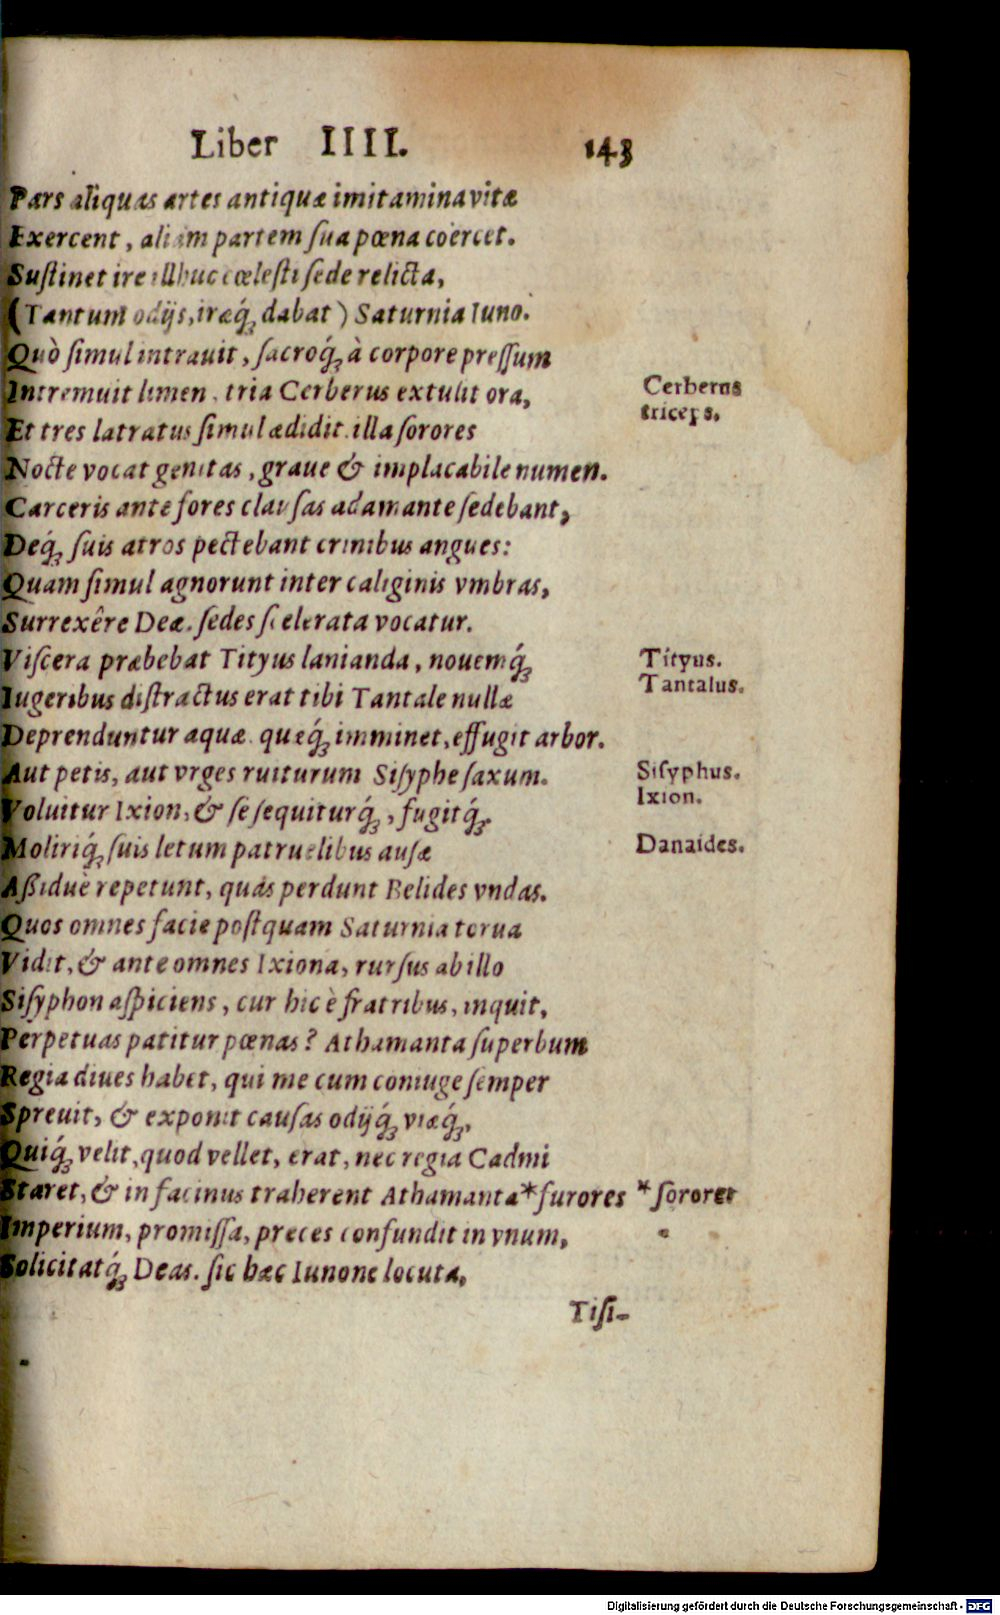 Liber IIII. 143
Pars aliquas artes antiquæ imitamina vitæ
Exercent, aliam partem ſua pœna coërcet.
Suſtinet ire illhuc cœleſti ſede relicta,
(Tantum odijs, iræq́; dabat) Saturnia Iuno.
Quò ſimul intrauit, ſacroq́; à corpore preſſum
Intremuit limen, tria Cerberus extulit ora,
Cerberus
triceps.
Et tres latratus ſimul ædidit. illa ſorores
Nocte vocat genitas, graue & implacabile numen.
Carceris ante fores clauſas adamante ſedebant,
Deq́; ſuis atros pectebant crinibus angues:
Quam ſimul agnorunt inter caliginis vmbras,
Surrexêre Deæ. ſedes ſcelerata vocatur.
Viſcera præbebat Tityus lanianda, nouemq́;
Tityus.
Iugeribus diſtractus erat tibi Tantale nullæ
Tantalus.
Deprenduntur aquæ. quæq́; imminet, effugit arbor.
Aut petis, aut vrges ruiturum Siſyphe ſaxum.
Siſyphus.
Voluitur Ixion, & ſe ſequiturq́;, fugitq́;.
Ixion.
Moliriq́; ſuis letum patruelibus auſæ
Danaides.
Aßiduè repetunt, quas perdunt Belides vndas.
Quos omnes facie poſtquam Saturnia torua
Vidit, & ante omnes Ixiona, rurſus ab illo
Siſyphon aſpiciens, cur hic è fratribus, inquit,
Perpetuas patitur pœnas? Athamanta ſuperbum
Regia diues habet, qui me cum coniuge ſemper
Spreuit, & exponit cauſas odijq́; viæq́;,
Quiq́; velit, quod vellet, erat, nec regia Cadmi
Staret, & in facinus traherent Athamanta *furores *ſorores
Imperium, promiſſa, preces confundit in vnum,
Solicitatq́; Deas. ſic hæc Iunone locuta,
Tiſi-
Digitalisierung gefördert durch die Deutsche Forschungsgemeinschaft - DFG